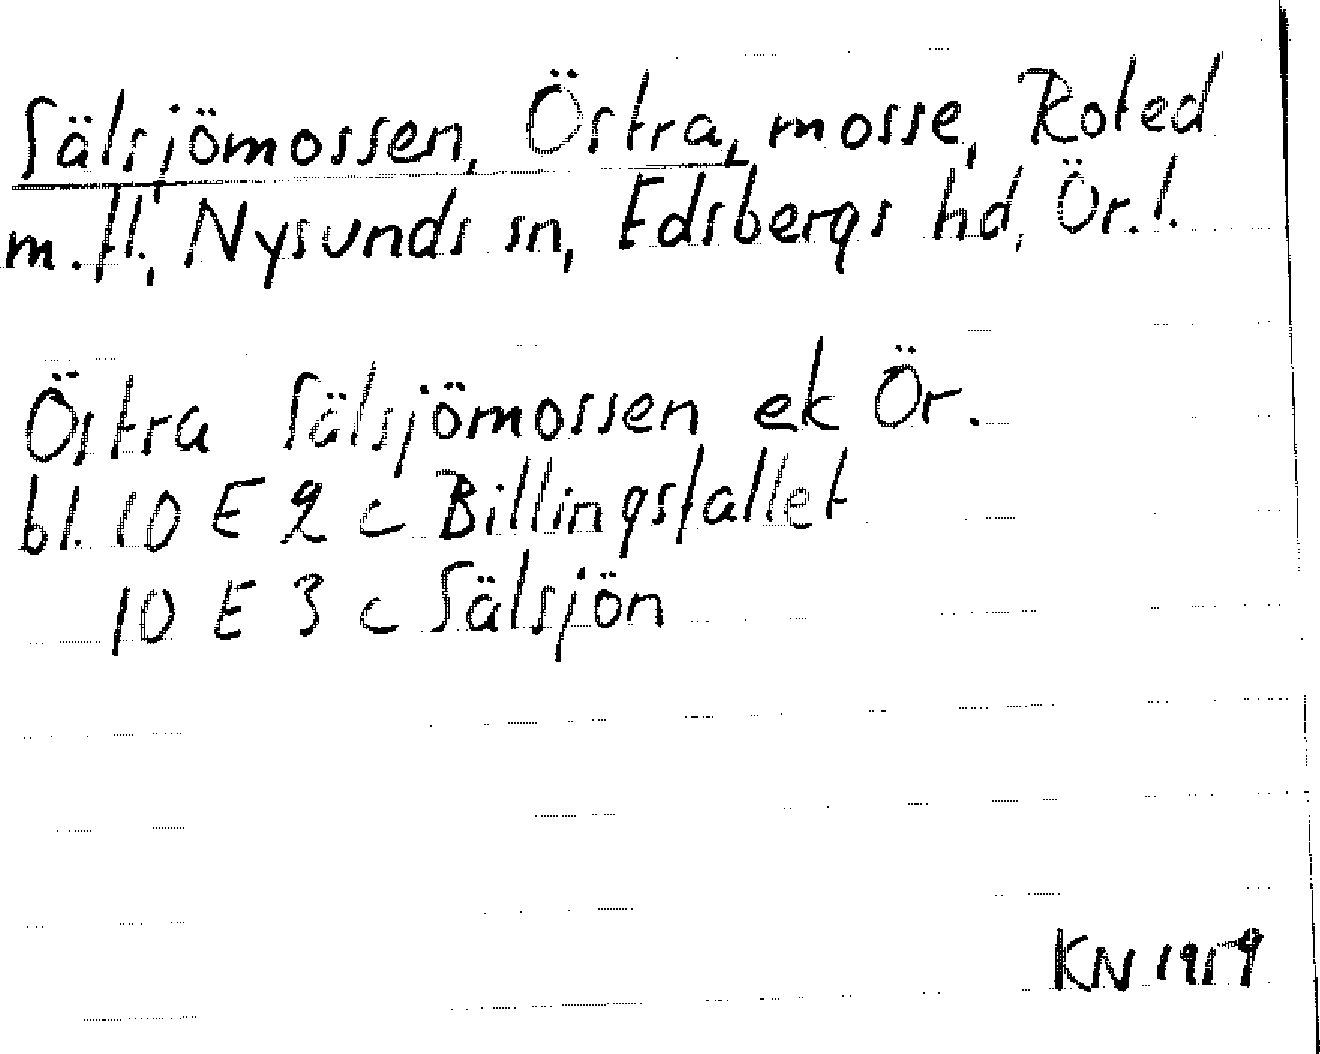 Sälsjömossen, Östra, mosse, Roted
m.fl., Nysunds sn, Edsbergs hd, Ör.l.
Östra Sälsjömossen ek Ör.
bl. 10 E 2 c Billingstallet
10 E 3 c Sälsjön
KN 1959